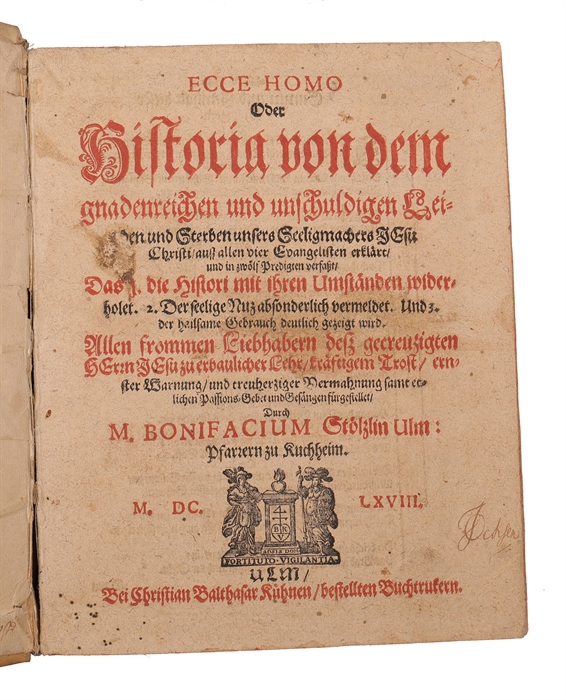 ECCE HOMO
Oder
Historia von dem
gnadenreichen und unschuldigen Lei-
den und Sterben unsers Seeligmachers JEsu
Christi/ auß allen vier Evangelisten erklärt/
und in zwölf Predigten verfaßt/
Das 1. die Histori mit ihren Umständen wider-
holet. 2. Der seelige Nuz absonderlich vermeldet. Und 3.
der hailsame Gebrauch deutlich gezeigt wird.
Allen frommen Liebhabern deß gecreuzigten
HErrn JEsu zu erbaulicher Lehr/ kräftigem Trost/ ern-
ster Warnung/ und treuherziger Vermahnung samt et-
lichen Passions-Gebet und Gesängen fürgestellet/
Durch
M. BONIFACIUM Stölzlin Ulm:
Pfarrern zu Kuchheim.
M. DC. LXVIII.
FORTITUTO VIGILANTIA
ULM/
Bei Christian Balthasar Kühnen/ bestellten Buchtrukern.